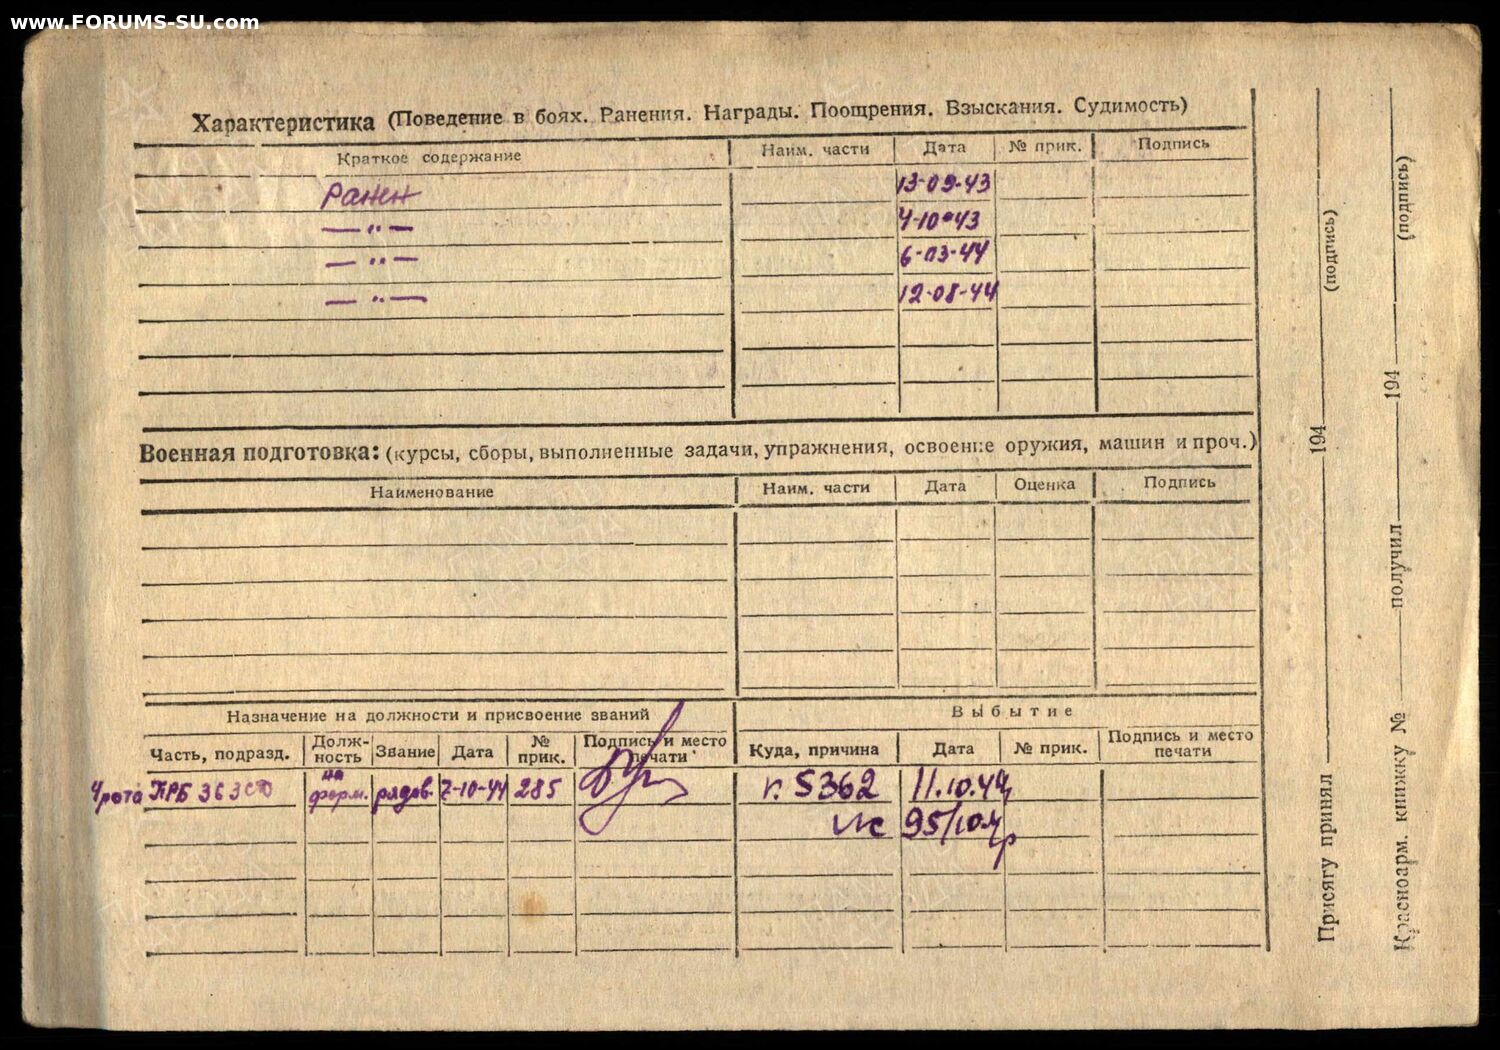 www.FORUMS-SU.com
Характеристика (Поведение в боях. Ранения. Награды. Поощрения. Взыскания. Судимость)
Краткое содержание Наим. части Дата № прик. Подпись
Ранен 13-09-43
— „ — 4-10-43
— „ — 6-03-44
— „ — 12-08-44
Военная подготовка: (курсы, сборы, выполненные задачи, упражнения, освоение оружия, машин и проч.)
Наименование Наим. части Дата Оценка Подпись
Назначение на должности и присвоение званий Выбытие
Часть, подразд. Долж-ность Звание Дата № прик. Подпись и место печати Куда, причина Дата № прик. Подпись и место печати
4 рота ПРБ 363 СД на форм. рядов. 7-10-44 285 к. S362 11.10.44
95/10
Присягу принял 194 (подпись)
Красноарм. книжку № получил 194 (подпись)
ПАМЯТЬ НАРОДА